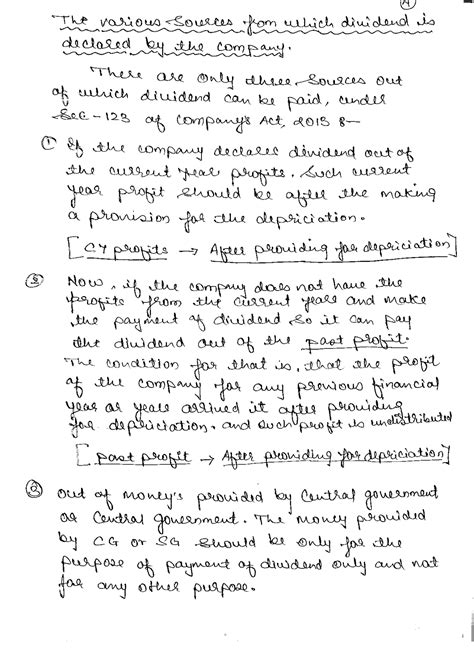 A
The various Sources from which dividend is
declared by the company.
There are only three Sources out
of which dividend can be paid, under
Sec - 123 of Company's Act, 2013 :-
① If the company declares dividend out of
the current year profits. Such current
year profit should be after the making
a provision for the depriciation.
[CY profits → After providing for depriciation]
② Now, if the company does not have the
profits from the current years and make
the payment of dividend so it can pay
the dividend out of the past profit.
The condition for that is, that the profit
of the company for any previous financial
year or years arrived it after providing
for depriciation, and such profit is undistributed
[past profit → After providing for depriciation]
③ Out of money's provided by Central government
or Central government. The money provided
by CG or SG should be only for the
purpose of payment of dividend only and not
for any other purpose.